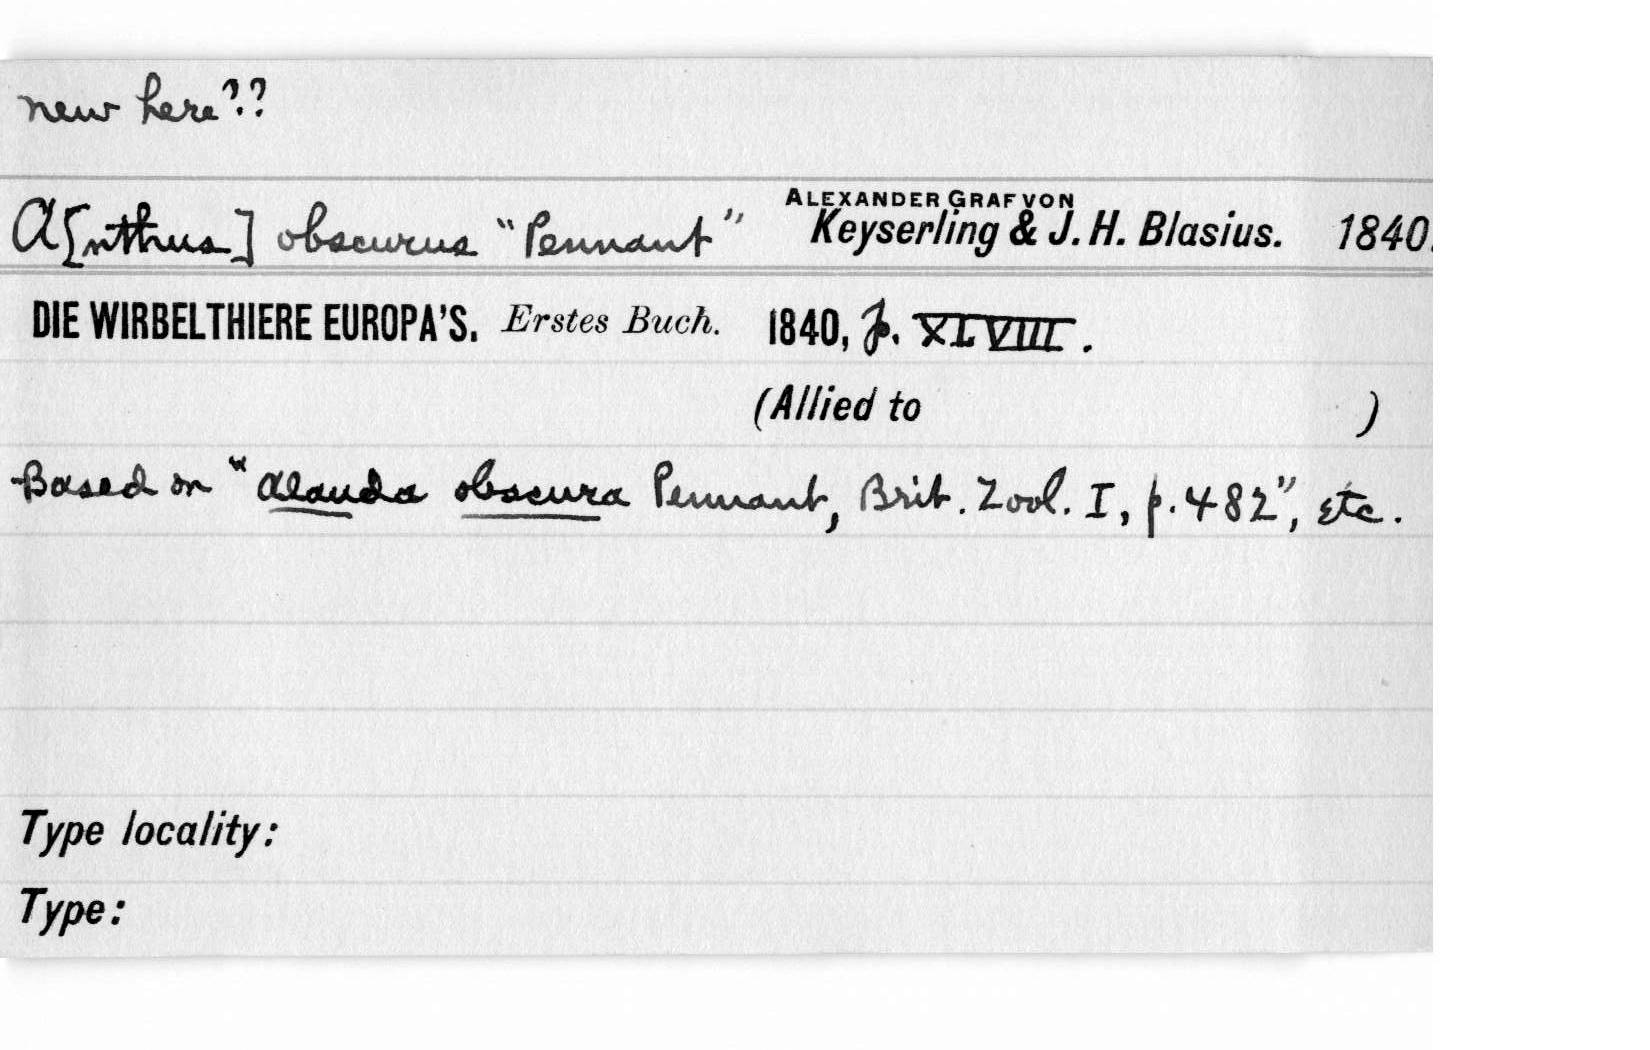 new here??
A[nthus] obscurus "Pennant" ALEXANDER GRAF VON Keyserling & J. H. Blasius. 1840.
DIE WIRBELTHIERE EUROPA'S. Erstes Buch. 1840, p. XLVIII.
(Allied to )
Based on "Alauda obscura Pennant, Brit. Zool. I, p. 482", etc.
Type locality:
Type: